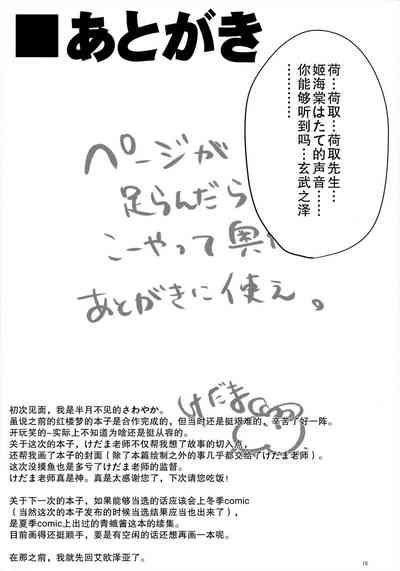 ■あとがき
荷…荷取…荷取先生…
姬海棠はたて的声音……
你能够听到吗…玄武之泽
……………
ページが
足らんだら
こーやって奥
あとがきに使え。
けだま
初次见面，我是半月不见的さわやか。
虽说之前的红楼梦的本子是合作完成的，但当时还是挺艰难的，辛苦了好一阵。
开玩笑的-实际上不知道为啥还是挺从容的。
关于这次的本子，けだま老师不仅想了故事的切入点，
还帮我画了本子的封面（除了本篇绘制之外的事几乎都交给了けだま老师）。
这次没摸鱼也是多亏了けだま老师的监督。
けだま老师真是神。真是太感谢您了，下次请您吃饭！
关于下一次的本子，如果能够当选的话应该会上冬季comic
（当然这次的本子发布的时候当选结果应当也出来了），
是夏季comic上出过的青蛾酱这本的续集。
目前画得还挺顺手，要是有空闲的话还想再画一本呢。
在那之前，我就先回艾欧泽亚了。